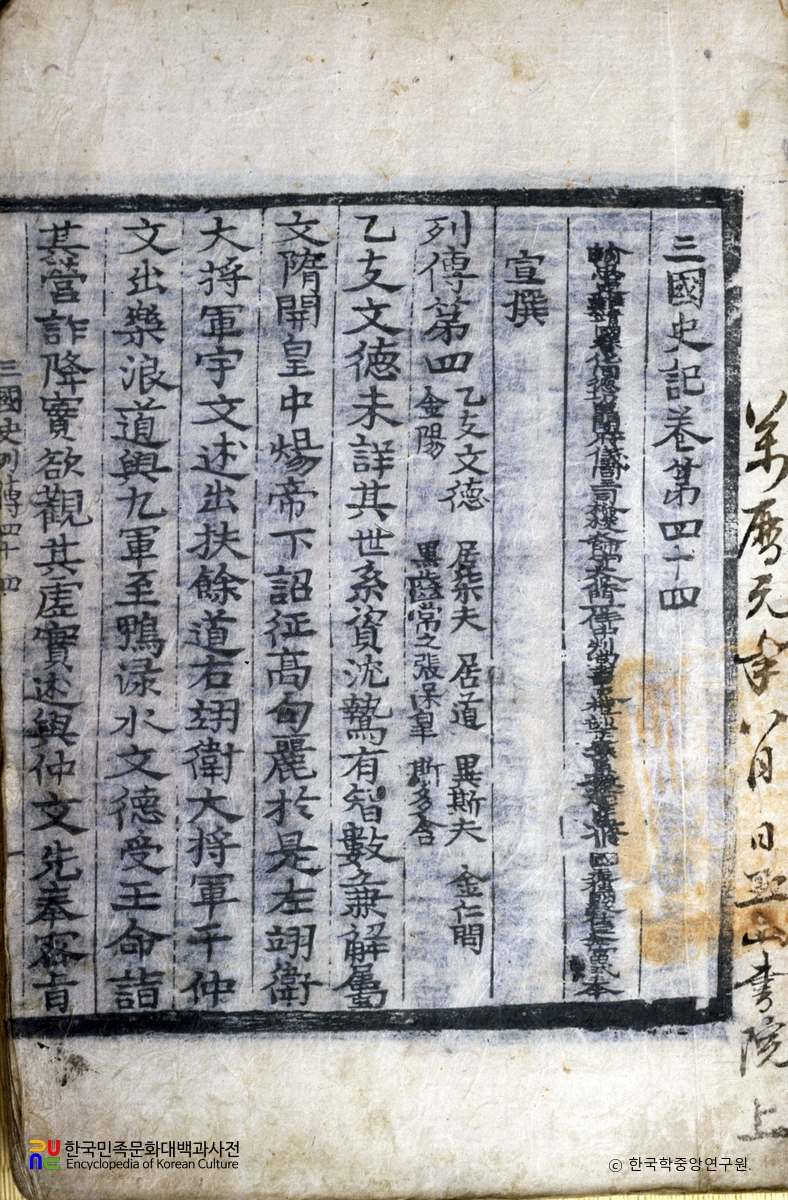 萬曆元年八月 日 玉山書院上
三國史記卷第四十四
府儀同三司檢校太師守太保門下侍中判尚書事
宣撰
列傳第四 乙支文德 居柒夫 居道 異斯夫 金仁問
金陽 黑齒常之 張保皐 斯多含
乙支文德未詳其世系資沈鷙有智數兼解屬
文隋開皇中煬帝下詔征高句麗於是左翊衛
大將軍宇文述出扶餘道右翊衛大將軍于仲
文出樂浪道與九軍至鴨淥水文德受王命詣
其營詐降實欲觀其虛實述與仲文先奉密旨
三國史列傳四十四
한국민족문화대백과사전
Encyclopedia of Korean Culture
© 한국학중앙연구원.